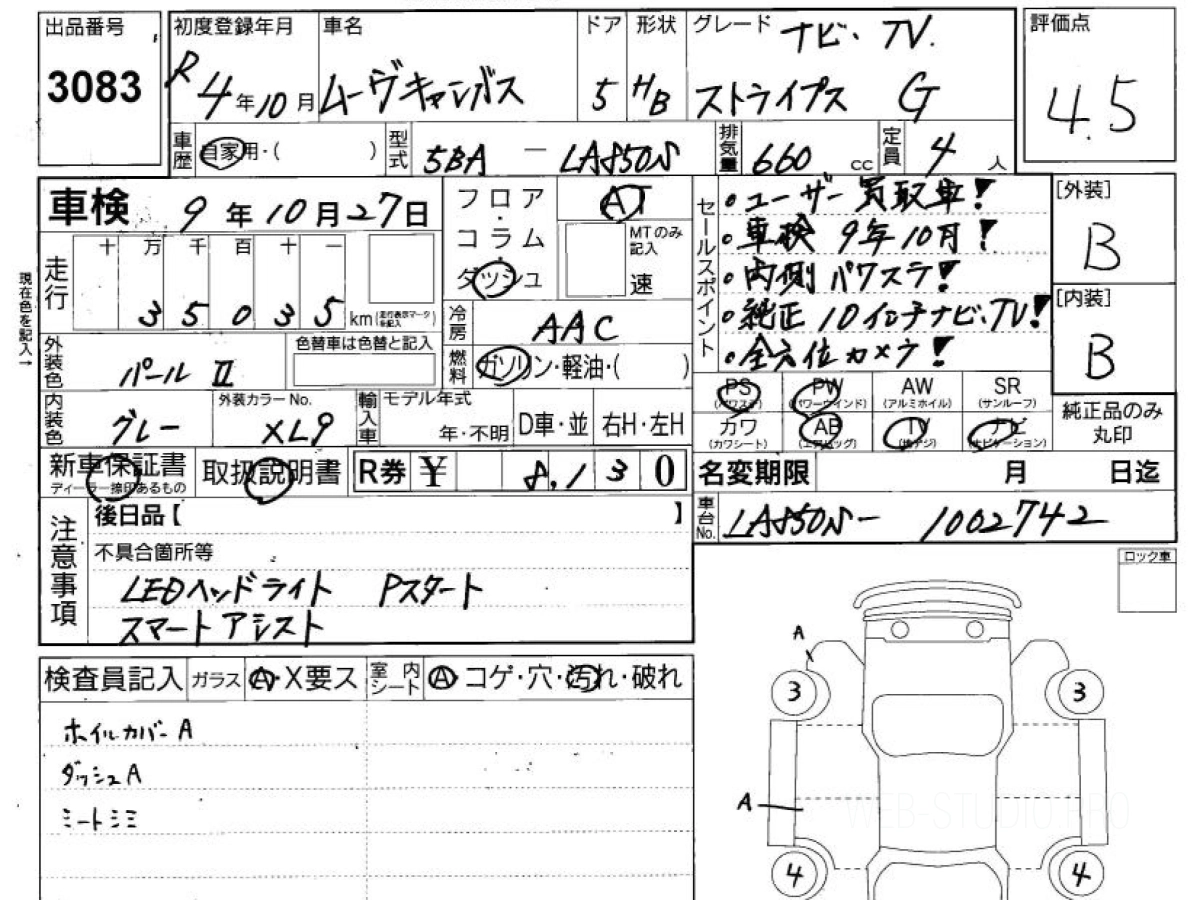 出品番号 初度登録年月 車名 ドア 形状 グレード ナビ・TV. 評価点
3083 R4年10月 ムーヴキャンバス 5 HB ストライプス G 4.5
車歴 自家用・( ) 型式 5BA - LA850S 排気量 660 cc 定員 4人
車検 9年10月27日 フロア・コラム・ダッシュ AT MTのみ記入 速
セールスポイント
・ユーザー買取車!
・車検 9年10月!
・内側パワステ!
・純正10インチナビ、TV!
・全方位カメラ!
[外装] B
[内装] B
現在色を記入→
走行 十 万 千 百 十 一
35035 km (走行表示マークを記入)
冷房 AAC
外装色 パールⅡ 色替車は色替と記入
燃料 ガソリン・軽油・( )
内装色 グレー 外装カラーNo. XL9 輸入車 モデル年式 年・不明 D車・並 右H・左H
PS (パワステ) PW (パワーウインド) AW (アルミホイル) SR (サンルーフ)
カワ (カワシート) AB (エアバッグ) TV (地デジ) ナビ (ナビゲーション)
純正品のみ丸印
新車保証書 ディーラー捺印あるもの 取扱説明書 R券 ¥ 8,130
名変期限 月 日迄
車台No. LA850S- 1002742
注意事項 後日品【 】
不具合箇所等
LEDヘッドライト Pスタート
スマートアシスト
ロック車
検査員記入 ガラス A・X要ス 室内シート A コゲ・穴・汚れ・破れ
ホイルカバーA
ダッシュA
シートシミ
A
3 3
A
4 4
WEB-STUDIO.PRO